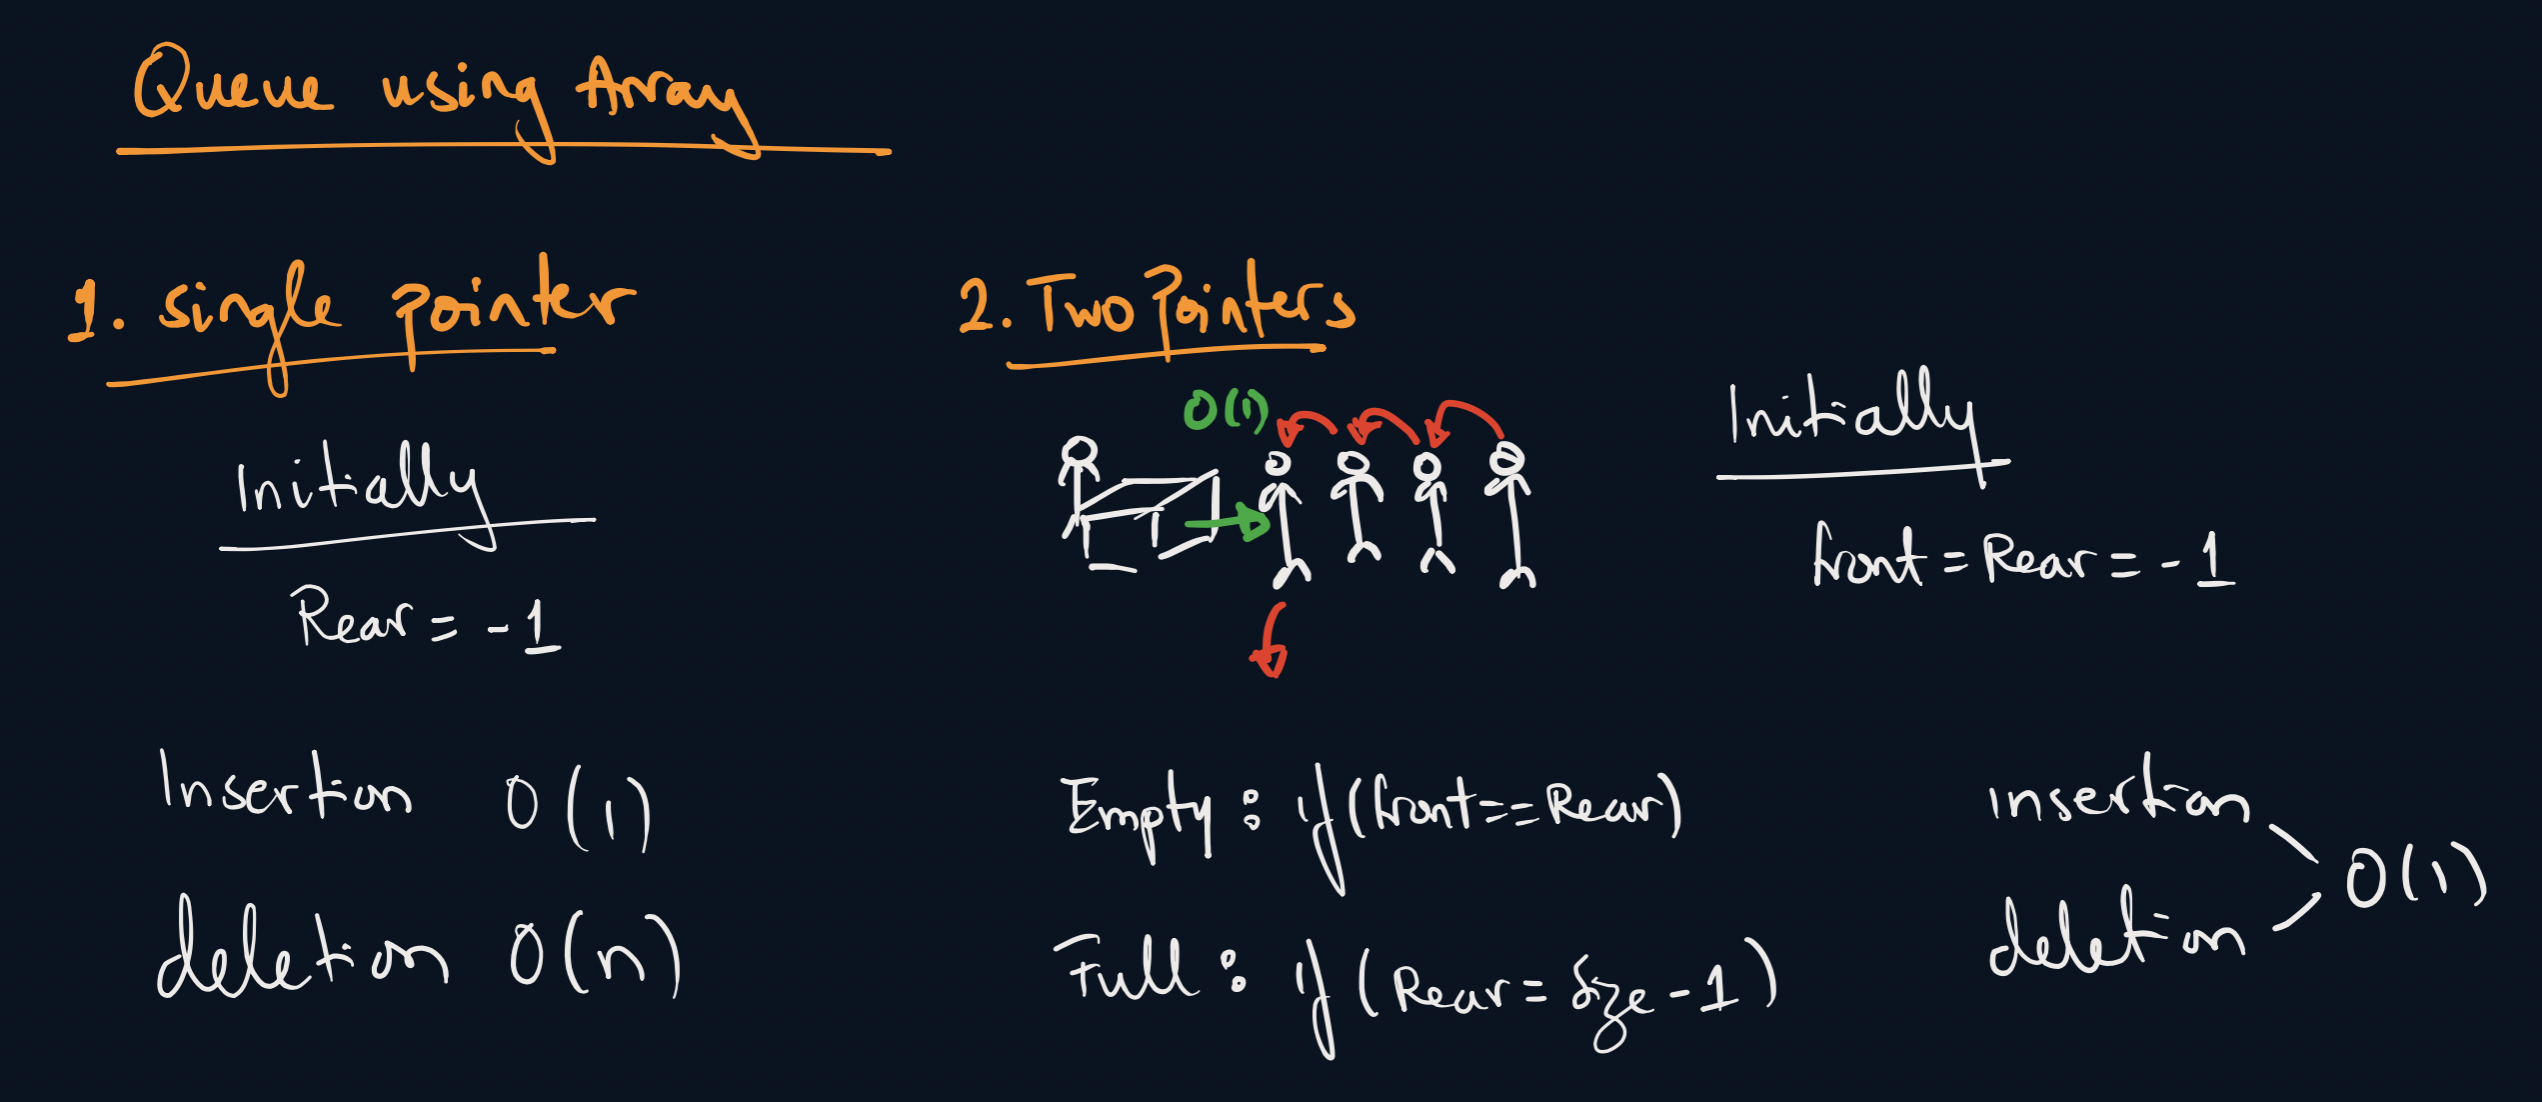 Queue using Array
1. single pointer
Initially
Rear = -1
Insertion O(1)
deletion O(n)
2. Two Pointers
O(1)
Initially
front = Rear = -1
Empty : if(front==Rear)
Full : if(Rear= size-1)
insertion
deletion
O(1)